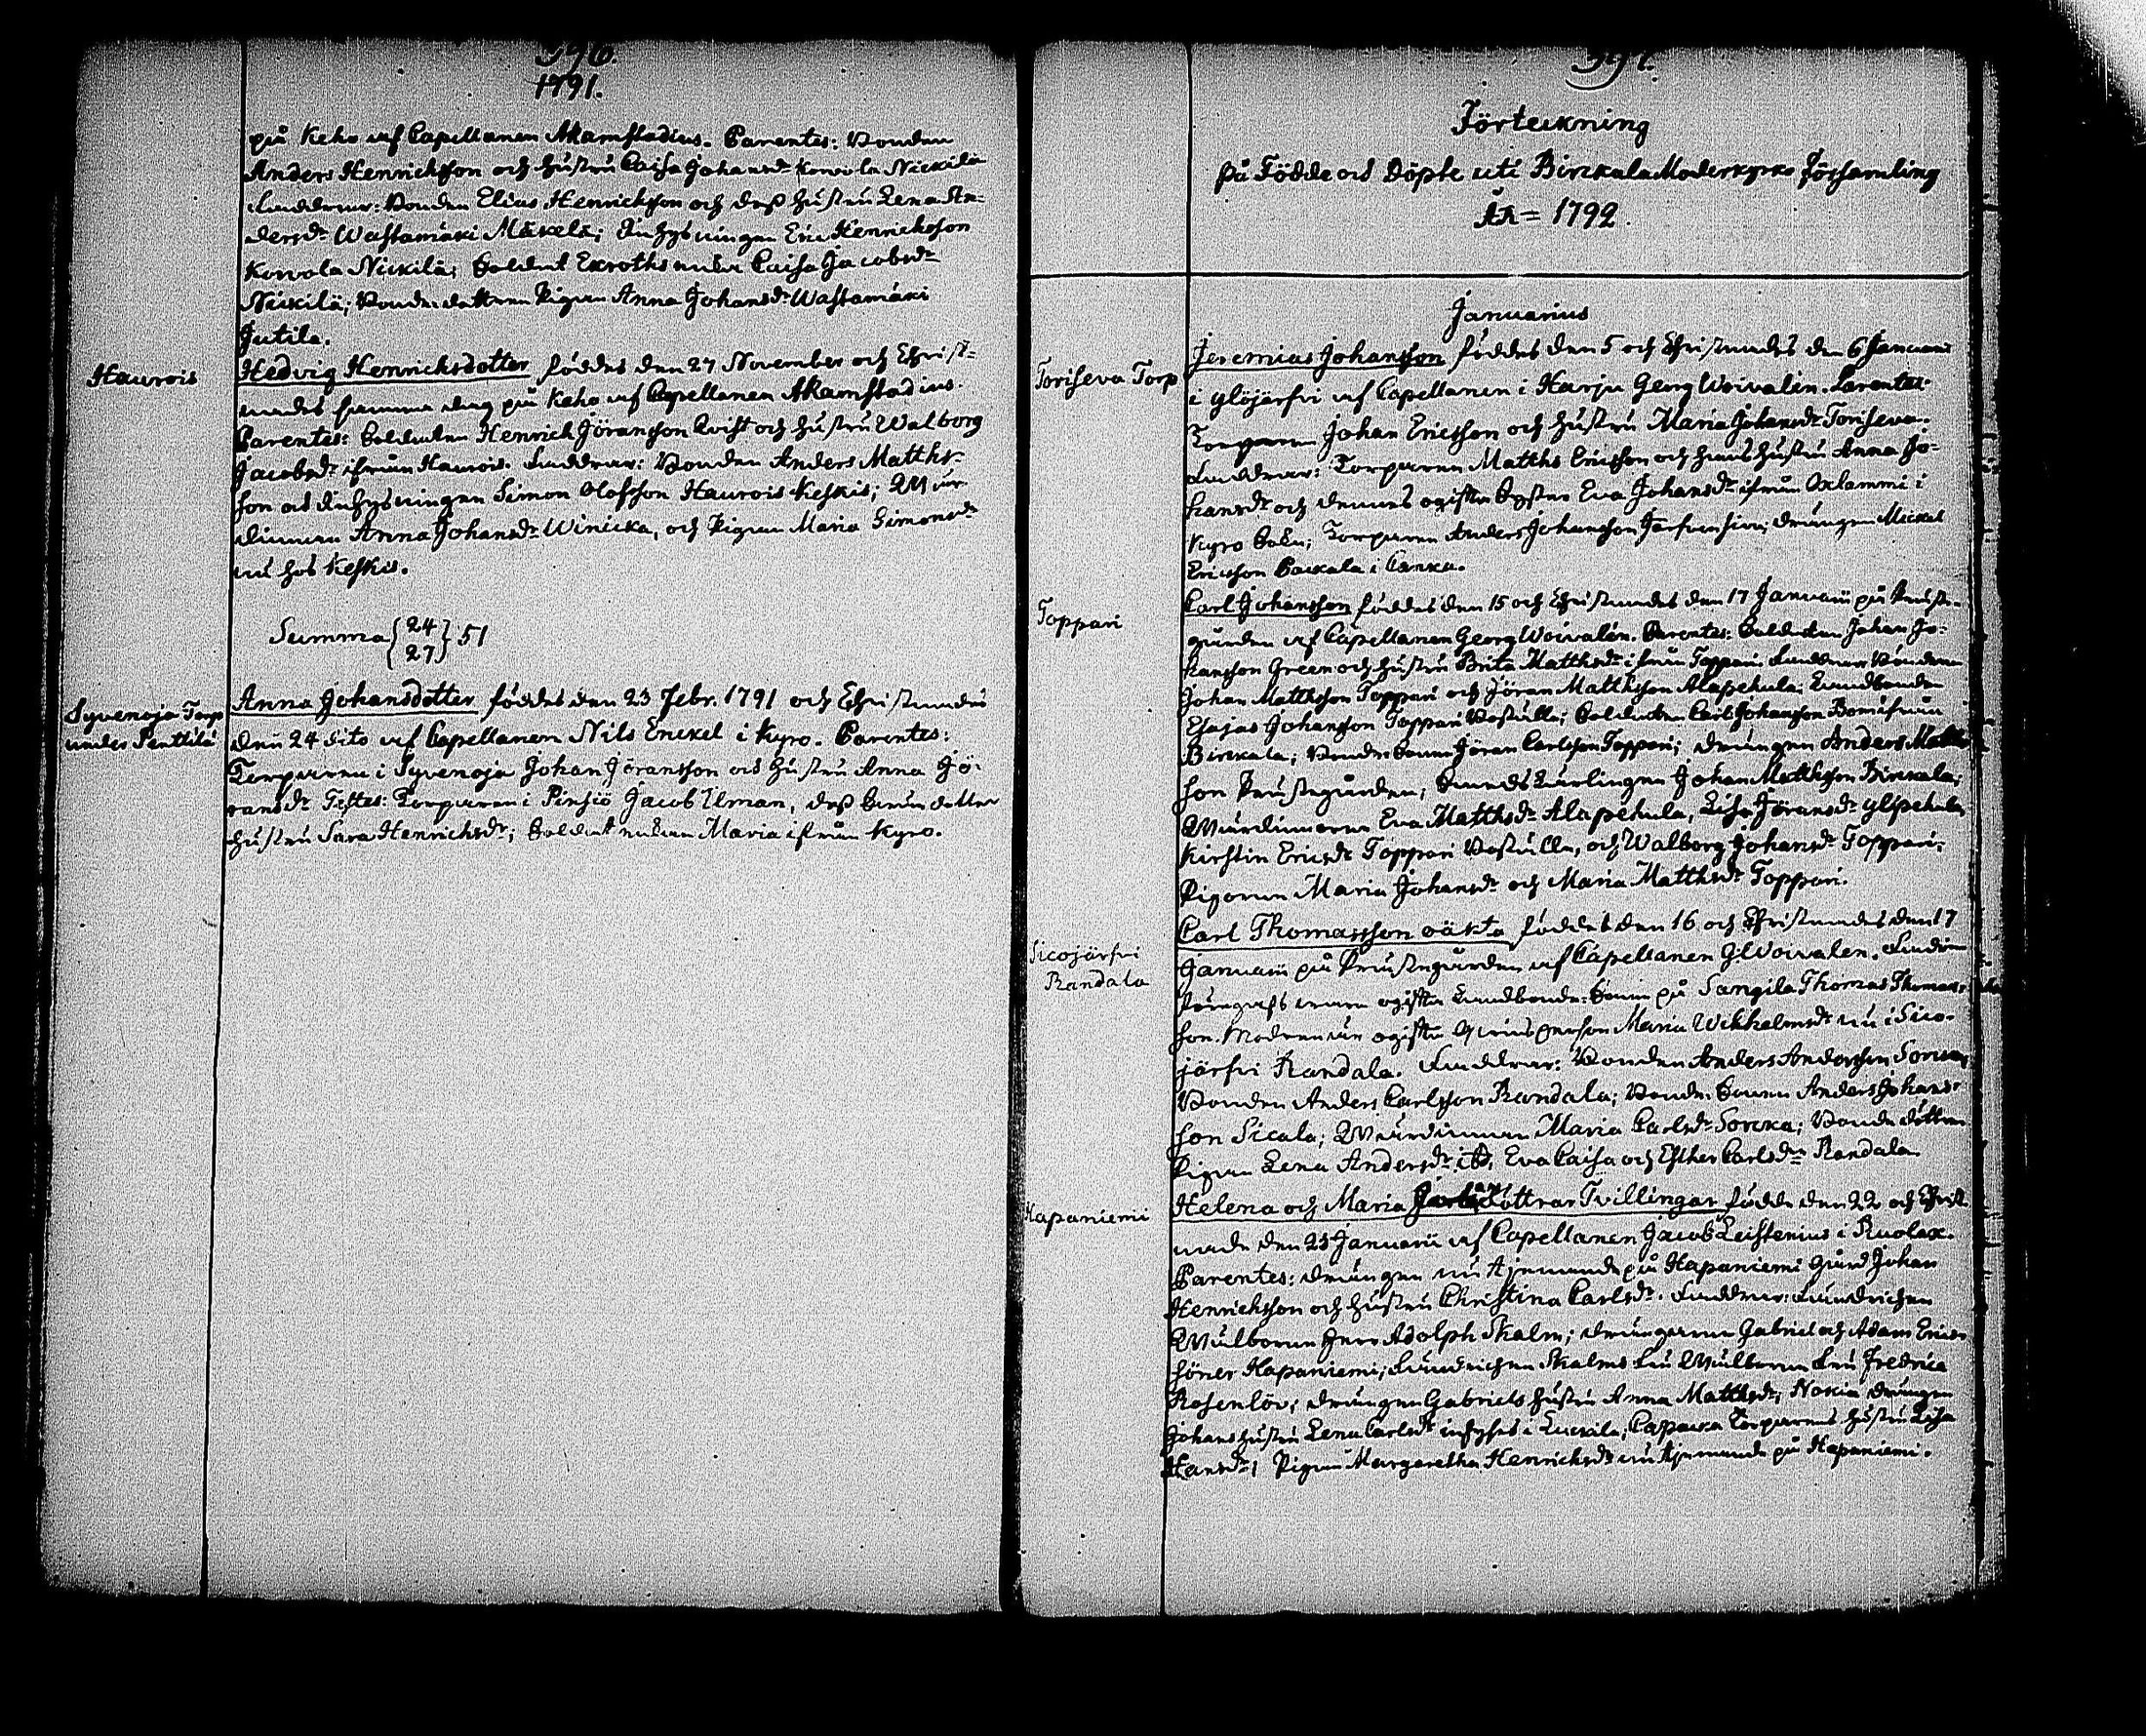 396.
1791.
på Keho af Capellanen Akamstadius. Parentes: Bonden
Anders Henricksson och hustru Caisa Johansdr Korvola Nickilä
Faddrar: Bonden Elias Henricksson och dess hustru Lena An-
dersdr Wastamäki Mäkelä; Inhysningen Eric Henricksson
Korvola Nickilä; Soldat Ekroths enka Caisa Jacobsdr
Nickilä; Bonde dottren Pigan Anna Johansdr Wastamäki
Jutila.
Haurois
Hedvig Henricksdotter föddes den 27 November och Christ-
nades samma dag på Keho af Capellanen Akamstadius.
Parentes: Soldaten Henrich Jöransson Qvist och hustru Walborg
Jacobsdr ifrån Haurois. Faddrar: Bonden Anders Matths-
son och Inhysningen Simon Olofsson Haurois Keskis; Wär-
dinnan Anna Johansdr Winicka, och Pigan Maria Simonsdr
nu hos Keskis.
Summa { 24
27 } 51
Syvenoja Torp
under Penttilä
Anna Johansdotter föddes den 23 Febr. 1791 och Christnades
den 24 dito af Capellanen Nils Enckel i Kyro. Parentes:
Torparen i Syvenoja Johan Jöransson och hustru Anna Jö-
ransdr Testes: Torparen i Pinsiö Jacob Ilman, dess
hustru Sara Henrichsdr; Soldat enkan Maria ifrån Kyro.
397.
Förteckning
På Födde och Döpte uti Birckala Moderkyrko Församling
År = 1792.
Januarius
Toriseva Torp
Jeremias Johansson föddes den 5 och Christnades den 6 Januarii
i Ylöjärfvi af Capellanen i Harju Georg Woivalin. Parentes:
Torparen Johan Ericsson och hustru Maria Johansdr Toriseva.
Faddrar: Torparen Matths Ericsson och hans hustru Anna Jo-
hansdr och dennes ogifta Syster Eva Johansdr ifrån Oxlammi i
Kyro Sokn; Torparen Anders Johansson Järfvensivu; drängen Mickel
Ericsson Packala i
Toppari
Carl Johansson föddes den 15 och Christnades den 17 Januarii på Präste-
gården af Capellanen Georg Woivalin. Parentes: Soldaten Johan Jo-
hansson Green och hustru Brita Matthsdr ifrån Toppari. Faddrar Bönderne
Johan Matthsson Toppari och Jöran Matthsson Alapehula; Landbonden
Esajas Johansson Toppari Yastulla; Soldaten Carl Johansson Bom ifrån
Birckala; Bonde Sonen Jöran Carlsson Toppari; drängen Anders Matths-
son Prästgården; Johan Matthsson Birckala;
Wärdinnorna Eva Matthsdr Alapehula, Lisa Jöransdr Ylipehula
Kirstin Ericsdr Toppari, och Walborg Johansdr Toppari;
Pigorna Maria Johansdr och Maria Matthsdr Toppari.
Sicojärfvi
Randala
Carl Thomasson oäkta föddes den 16 och Christnades den 17
Januarii på Prästegården af Capellanen G Woivalen.
ogifta Landbonde Sonen på Sangila Thomas Thomas-
son. Modren är ogifta Qvinsperson Maria Wilhelmsdr nu i Sico-
järfvi Randala. Faddrar: Bonden Anders Andersson Sorcka,
Bonden Anders Carlsson Randala; Bonde Sonen Anders Johans-
son Sicala; Wärdinnan Maria Carlsdr Sorcka; Bonde döttrar
Pigan Lena Andersdr ib, Eva Caisa och Esther Carlsdr Randala
Hapaniemi
Helena och Maria Johans döttrar Tvillingar födde den 22 och Christ-
nade den 23 Januarii af Capellanen Jacob Leistenius i Ruolax.
Parentes: drängen nu tjenande på Hapaniemi gård Johan
Henricksson och hustru Christina Carlsdr. Faddrar: Fändrichen
Wälborne Herr Adolph Skalm; drängarne Gabriel och Adam Erics
söner Hapaniemi; Fändrichen Skalms Fru Wälborna Fru Fredrica
Rosenlöv; drängen Gabriels hustru Anna Matthsdr; Nokia drängen
Johans hustru Lena Carlsdr inhyses i Luckala; Torparens hustru Lisa
Hansdr; Pigan Margaretha Henricksdr nu tjenande på Hapaniemi.